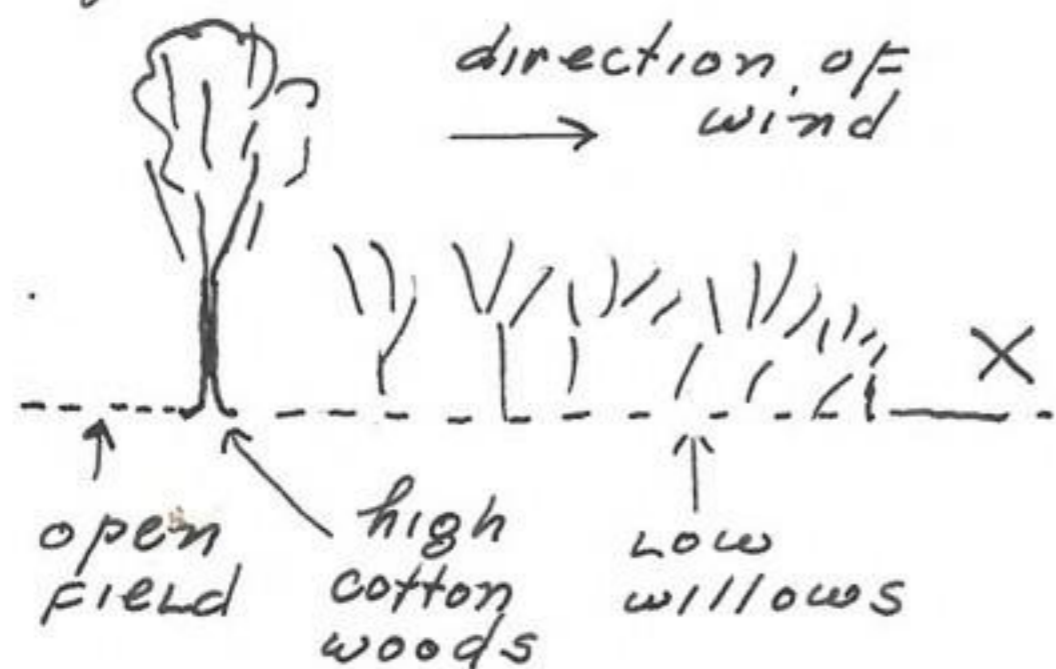 direction of
wind
X
open
field
high
cotton
woods
Low
willows